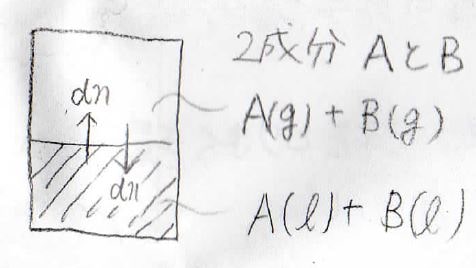 2成分 AとB
dn
A(g) + B(g)
dn
A(l) + B(l)